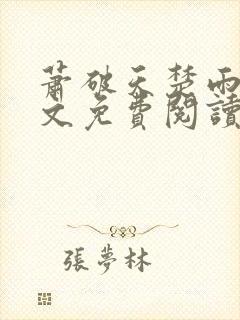 蕭破天楚雨
文免費閱讀
張夢林